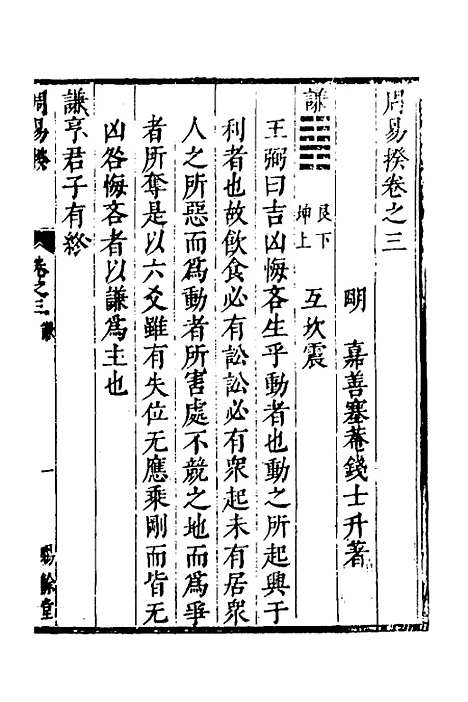 周易揆卷之三
明 嘉善塞菴錢士升著
謙 艮下坤上 互坎震
王弼曰吉凶悔吝生乎動者也動之所起興于
利者也故飲食必有訟訟必有衆起未有居衆
人之所惡而爲動者所害處不競之地而爲爭
者所奪是以六爻雖有失位无應乘剛而皆无
凶咎悔吝者以謙爲主也
謙亨君子有終
周易揆 卷之三 謙 一 賜餘堂